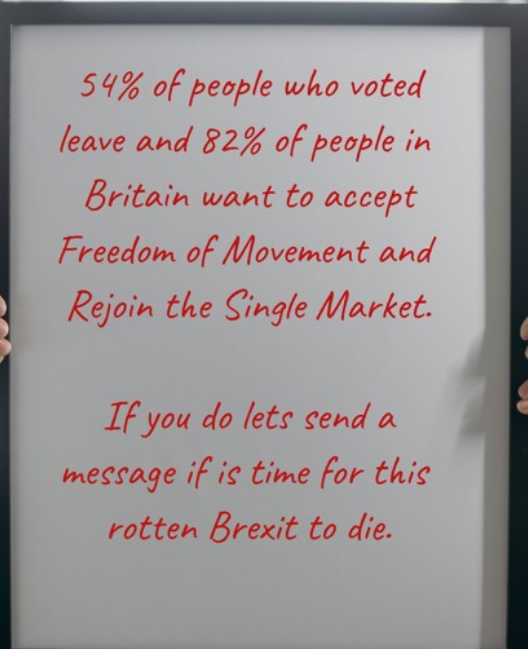 54% of people who voted
leave and 82% of people in
Britain want to accept
Freedom of Movement and
Rejoin the Single Market.
If you do lets send a
message if is time for this
rotten Brexit to die.